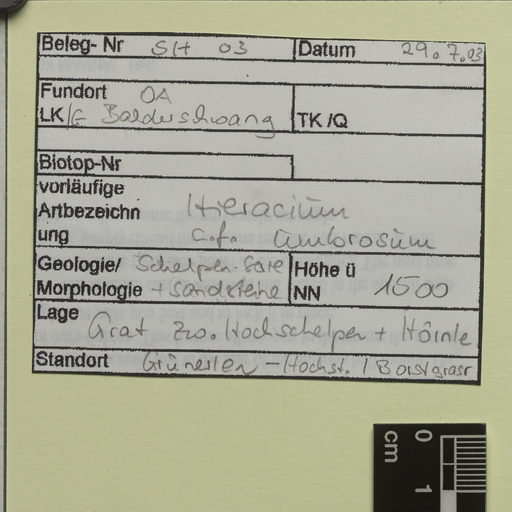 Beleg- Nr SH 03 Datum 29.7.03
Fundort OA
LK/G Balderschwang TK /Q
Biotop-Nr
vorläufige
Artbezeichn Hieracium
ung c.f. umbrosum
Geologie/ Schelpen-Serie Höhe ü
Morphologie + Sandsteine NN 1500
Lage
Grat zw. Hochschelpen + Hörnle
Standort Grünerlen-Hochst. / Borstgrasr
cm 0 1